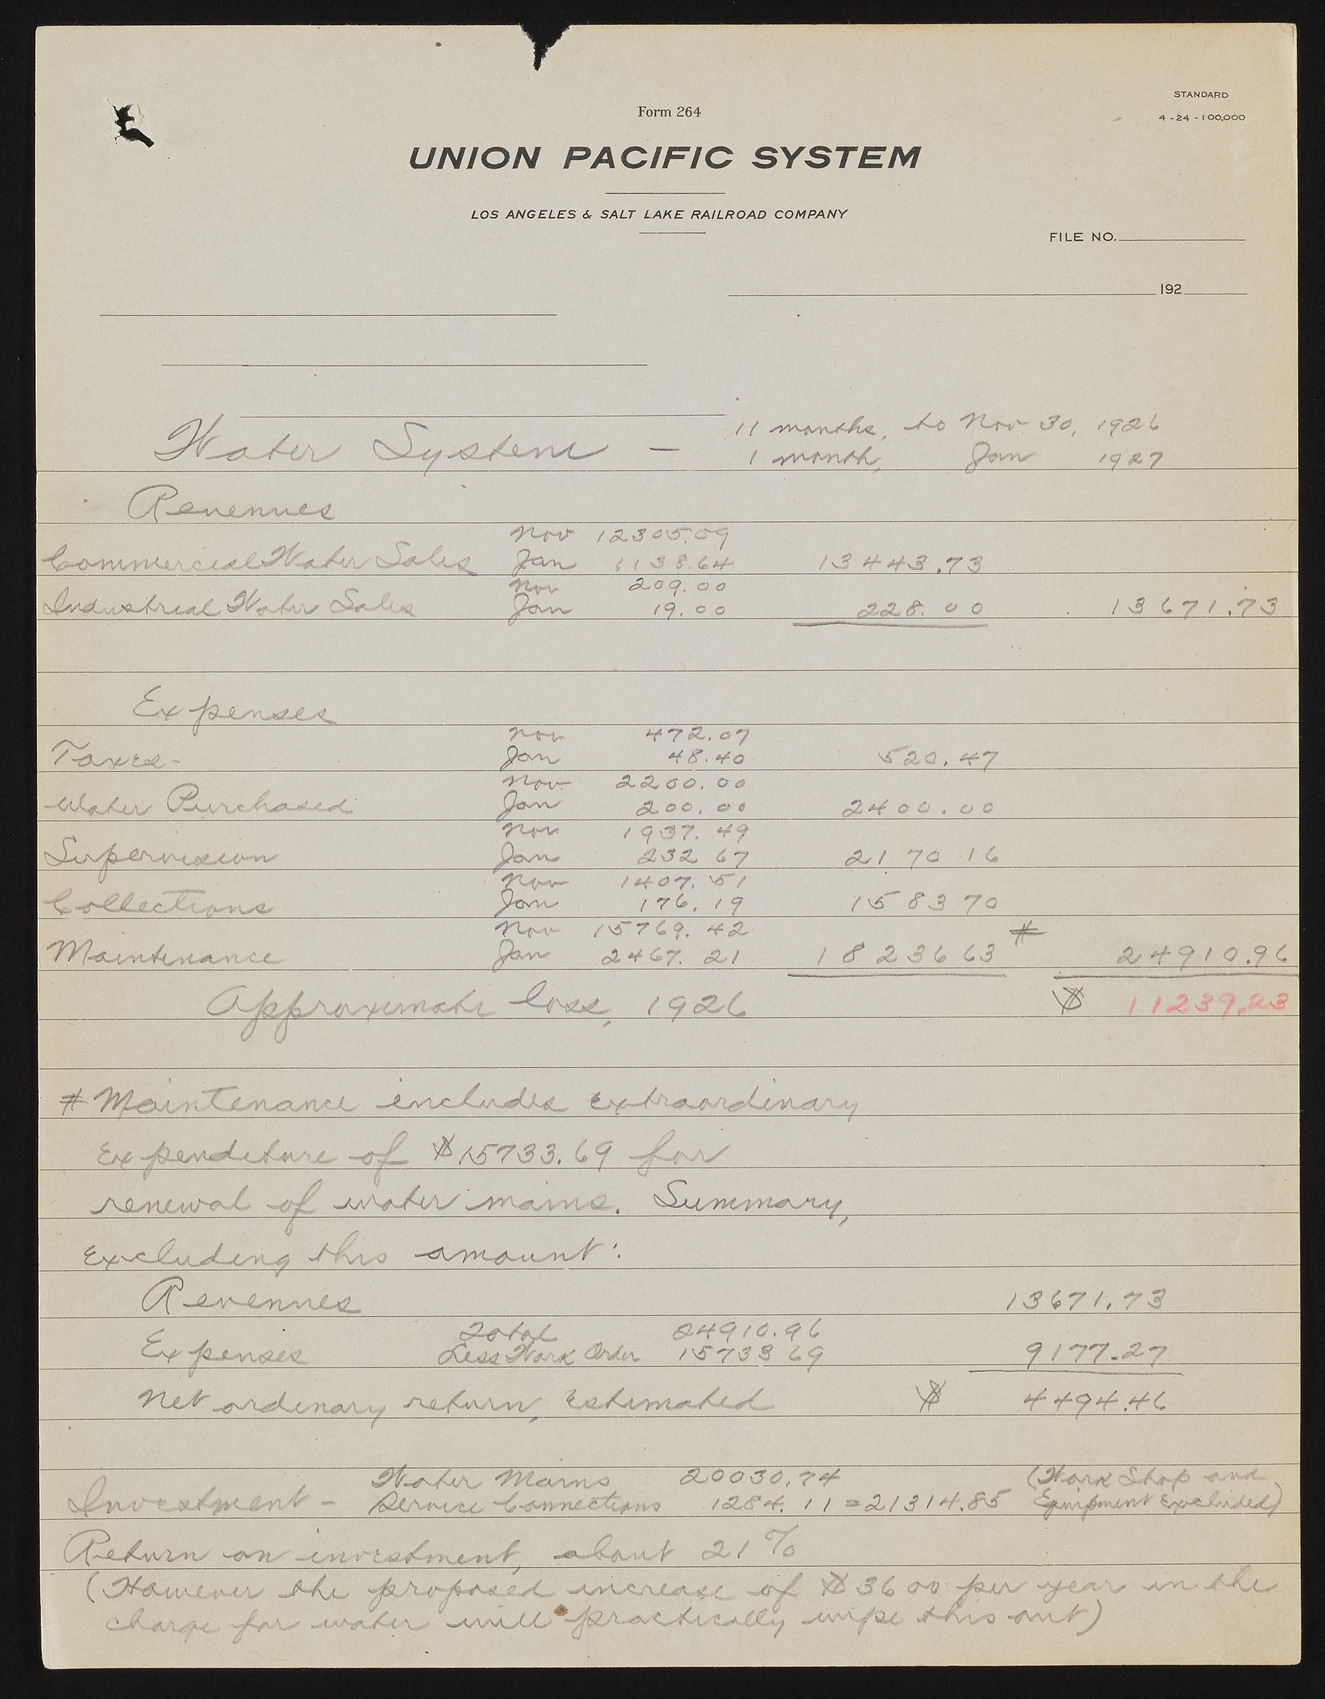 Form 264
STANDARD
4-24-100,000
UNION PACIFIC SYSTEM
LOS ANGELES & SALT LAKE RAILROAD COMPANY
FILE NO.
192
Water System - 11 months, to Nov. 30, 1926
1 month, Jan 1927
Revenues
Nov 12305.09
Commercial Water Sales Jan 1138.64 13443.73
Nov 209.00
Industrial Water Sales Jan 19.00 228.00 13671.73
Expenses
Nov 472.07
Taxes- Jan 48.40 520.47
Nov 2200.00
Water Purchased Jan 200.00 2400.00
Nov 1937.49
Supervision Jan 232 67 2170 16
Nov 1407.51
Collections Jan 176.19 1583 70
Nov 15769.42
Maintenance Jan 2467.21 18236 63 # 24910.96
Approximate loss, 1926 $ 11239.23
# Maintenance includes extraordinary
Expenditure of $15733.69 for
renewal of water mains. Summary,
Excluding this amount:
Revenues 13671.73
Total 24910.96
Expenses Less Work Order 15733 69 9177.27
Net ordinary return, Estimated $ 4494.46
Water Mains 20030.74 (Work Shop and
Investment - Service Connections 1284.11 = 21314.85 Equipment Excluded)
Return on investment, about 21%
(However the proposed increase of $3600 per year in the
charge for water will practically wipe this out)